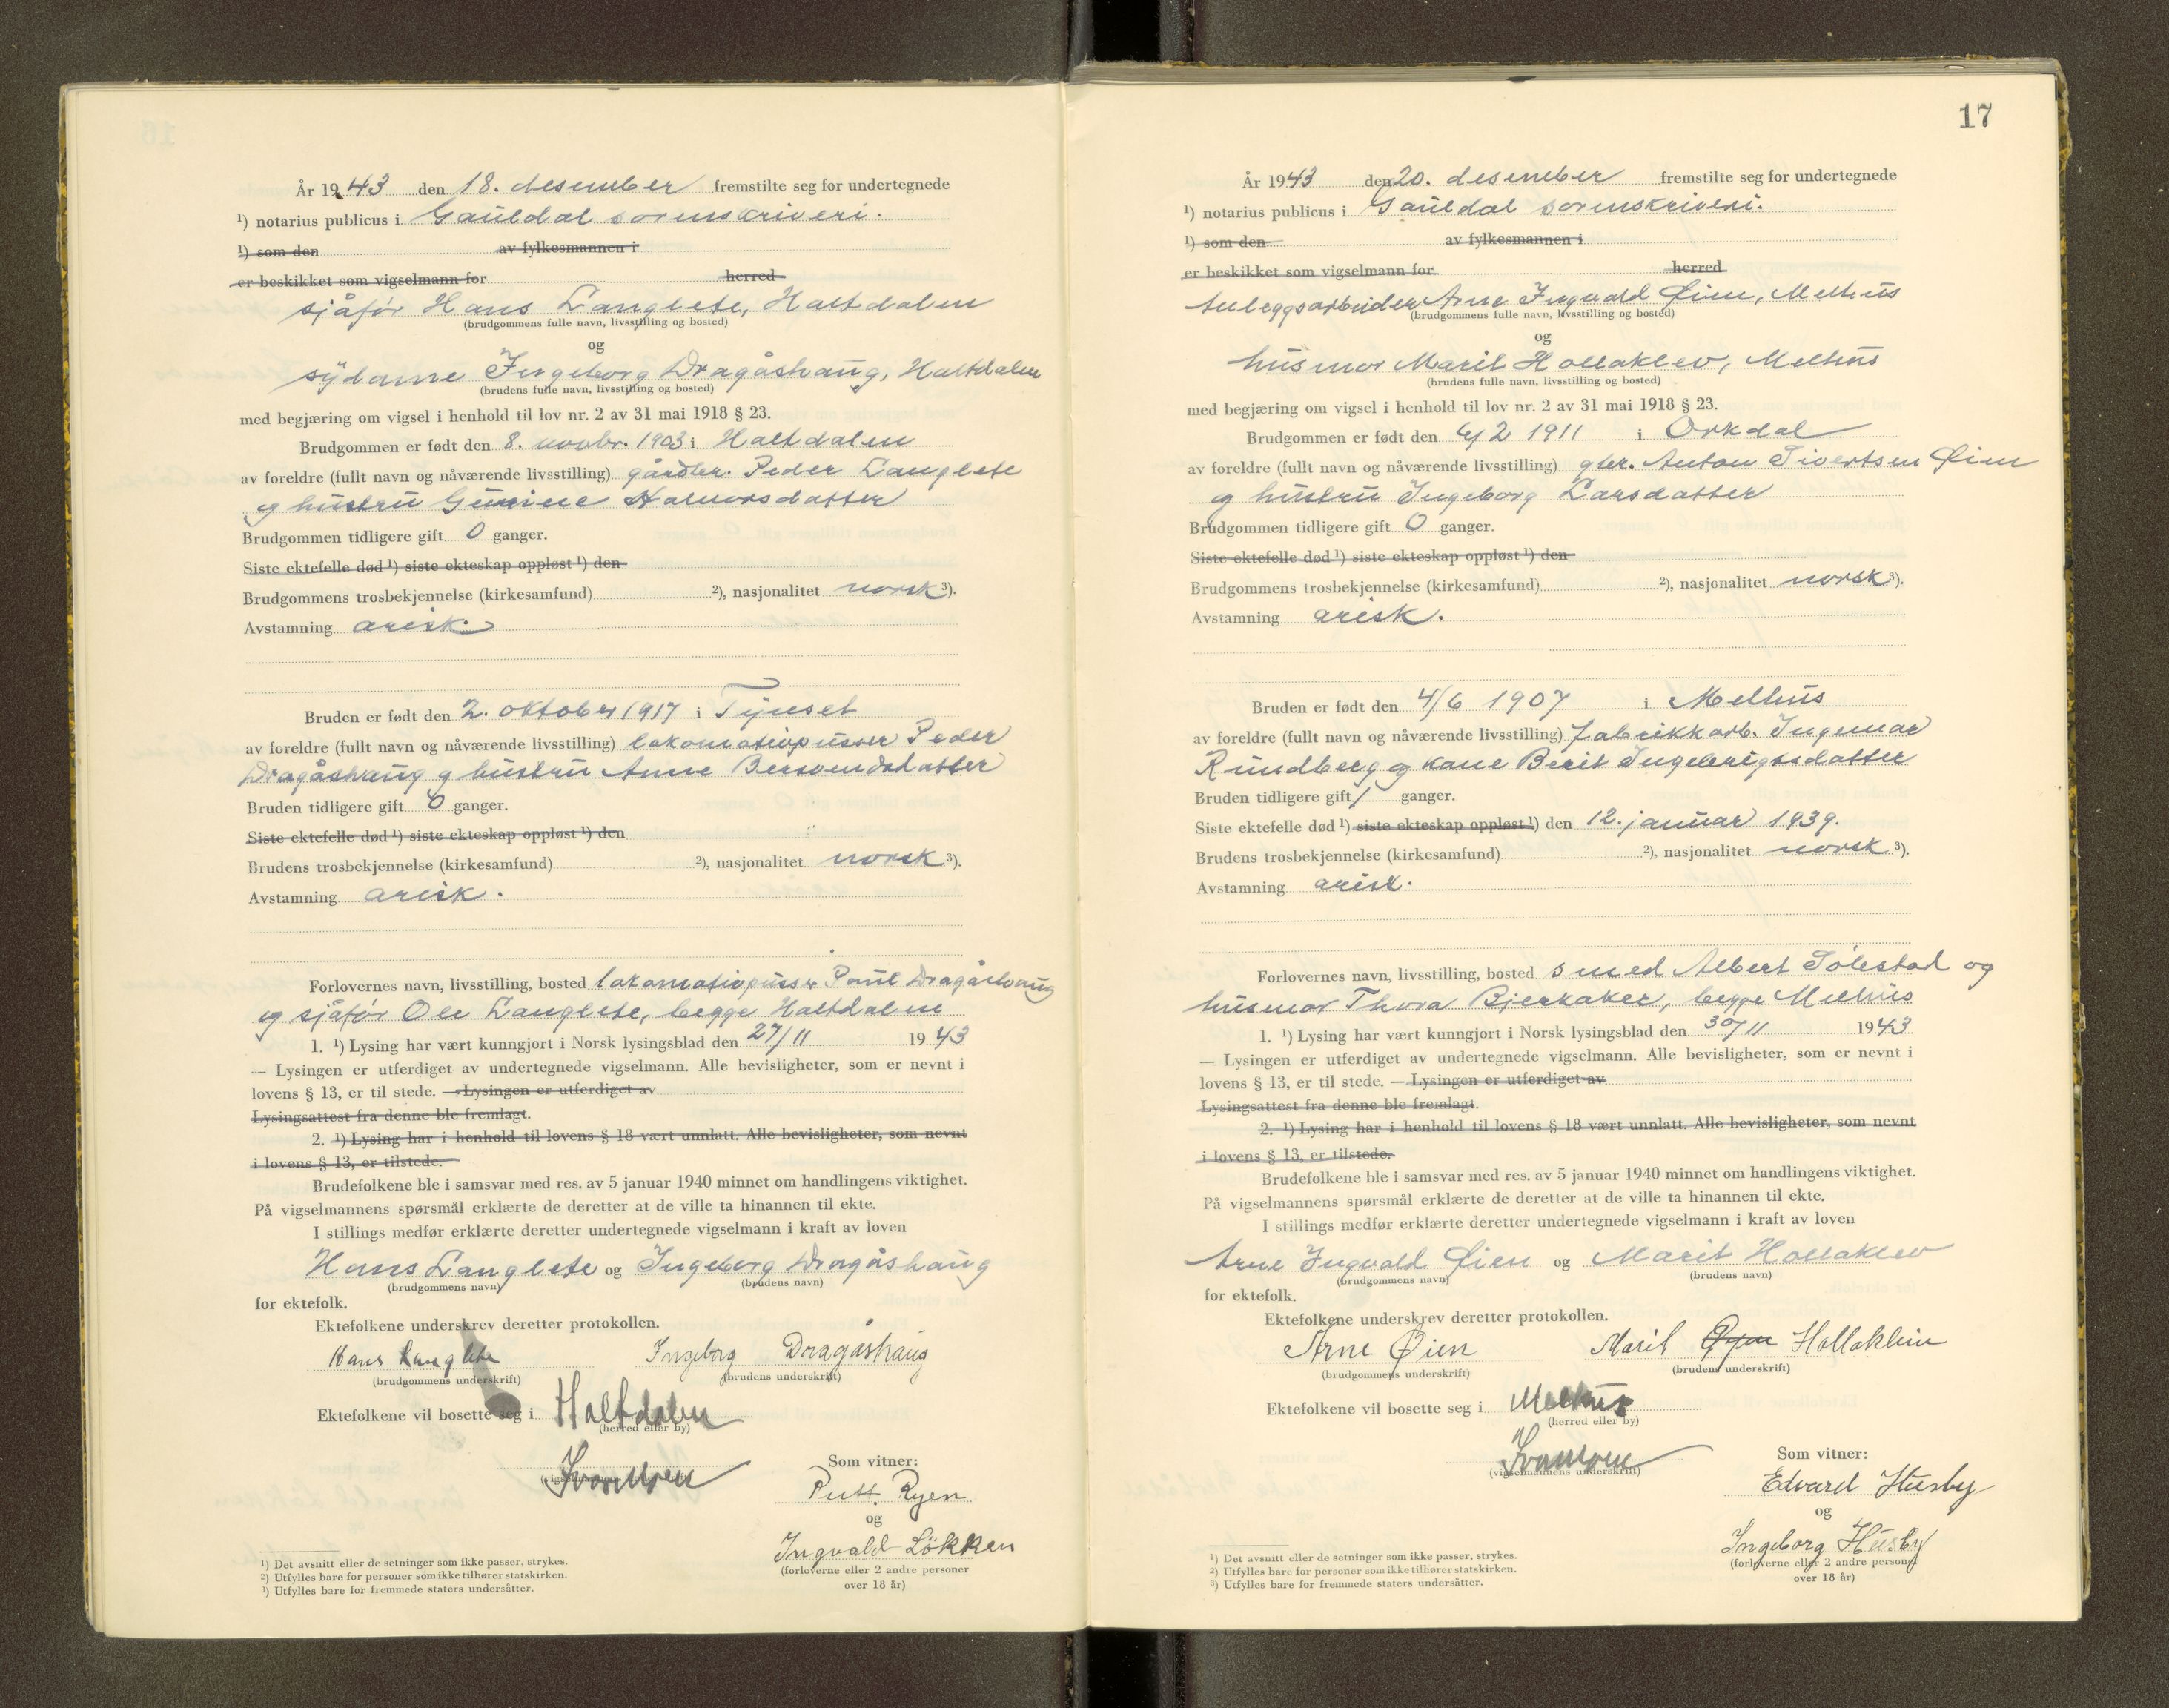 År 1943 den 18. desember fremstilte seg for undertegnede
¹) notarius publicus i Gauldal sorenskriveri.
¹) som den av fylkesmannen i
er beskikket som vigselmann for herred
sjåfør Hans Langlete, Haltdalen
(brudgommens fulle navn, livsstilling og bosted)
og
sydame Ingeborg Dragåshaug, Haltdalen
(brudens fulle navn, livsstilling og bosted)
med begjæring om vigsel i henhold til lov nr. 2 av 31 mai 1918 § 23.
Brudgommen er født den 8. novbr. 1903 i Haltdalen
av foreldre (fullt navn og nåværende livsstilling) gårdbr. Peder Langlete
og hustru Halvorsdatter
Brudgommen tidligere gift 0 ganger.
Siste ektefelle død ¹) siste ekteskap oppløst ¹) den
Brudgommens trosbekjennelse (kirkesamfund) ²), nasjonalitet norsk ³).
Avstamning arisk.
Bruden er født den 2. oktober 1917 i Tynset
av foreldre (fullt navn og nåværende livsstilling) lokomotivpusser Peder
Dragåshaug og hustru Anne Bersvendsdatter
Bruden tidligere gift 0 ganger.
Siste ektefelle død ¹) siste ekteskap oppløst ¹) den
Brudens trosbekjennelse (kirkesamfund) ²), nasjonalitet norsk ³).
Avstamning arisk.
Forlovernes navn, livsstilling, bosted lokomotivpusser Paul Dragåshaug
og sjåfør Ole Langlete, begge Haltdalen
1. ¹) Lysing har vært kunngjort i Norsk lysingsblad den 27/11 1943
— Lysingen er utferdiget av undertegnede vigselmann. Alle bevisligheter, som er nevnt i
lovens § 13, er til stede. — Lysingen er utferdiget av
Lysingsattest fra denne ble fremlagt.
2. ¹) Lysing har i henhold til lovens § 18 vært unnlatt. Alle bevisligheter, som nevnt
i lovens § 13, er tilstede.
Brudefolkene ble i samsvar med res. av 5 januar 1940 minnet om handlingens viktighet.
På vigselmannens spørsmål erklærte de deretter at de ville ta hinannen til ekte.
I stillings medfør erklærte deretter undertegnede vigselmann i kraft av loven
Hans Langlete og Ingeborg Dragåshaug
(brudgommens navn) (brudens navn)
for ektefolk.
Ektefolkene underskrev deretter protokollen.
Hans Langlete Ingeborg Dragåshaug
(brudgommens underskrift) (brudens underskrift)
Ektefolkene vil bosette seg i Haltdalen
(herred eller by)
Som vitner:
Ryen
og
Ingvald Løkken
(forloverne eller 2 andre personer
over 18 år)
¹) Det avsnitt eller de setninger som ikke passer, strykes.
²) Utfylles bare for personer som ikke tilhører statskirken.
³) Utfylles bare for fremmede staters undersåtter.
17
År 1943 den 20. desember fremstilte seg for undertegnede
¹) notarius publicus i Gauldal sorenskriveri.
¹) som den av fylkesmannen i
er beskikket som vigselmann for herred
Anleggsarbeider Arne Ingvald Øien, Melhus
(brudgommens fulle navn, livsstilling og bosted)
og
husmor Marit Hollaklev, Melhus
(brudens fulle navn, livsstilling og bosted)
med begjæring om vigsel i henhold til lov nr. 2 av 31 mai 1918 § 23.
Brudgommen er født den 2 1911 i Orkdal
av foreldre (fullt navn og nåværende livsstilling) gbr. Anton Sivertsen Øien
og hustru Ingeborg Larsdatter
Brudgommen tidligere gift 0 ganger.
Siste ektefelle død ¹) siste ekteskap oppløst ¹) den
Brudgommens trosbekjennelse (kirkesamfund) ²), nasjonalitet norsk ³).
Avstamning arisk.
Bruden er født den 4/6 1907 i Melhus
av foreldre (fullt navn og nåværende livsstilling) fabrikkarb. Ingemar
Rundberg og kone Berit Ingebrigtsdatter
Bruden tidligere gift 1 ganger.
Siste ektefelle død ¹) siste ekteskap oppløst ¹) den 12. januar 1939.
Brudens trosbekjennelse (kirkesamfund) ²), nasjonalitet norsk ³).
Avstamning arisk.
Forlovernes navn, livsstilling, bosted smed Albert Solestad og
husmor Thora Bjerkaker, begge Melhus
1. ¹) Lysing har vært kunngjort i Norsk lysingsblad den 30/11 1943
— Lysingen er utferdiget av undertegnede vigselmann. Alle bevisligheter, som er nevnt i
lovens § 13, er til stede. — Lysingen er utferdiget av
Lysingsattest fra denne ble fremlagt.
2. ¹) Lysing har i henhold til lovens § 18 vært unnlatt. Alle bevisligheter, som nevnt
i lovens § 13, er tilstede.
Brudefolkene ble i samsvar med res. av 5 januar 1940 minnet om handlingens viktighet.
På vigselmannens spørsmål erklærte de deretter at de ville ta hinannen til ekte.
I stillings medfør erklærte deretter undertegnede vigselmann i kraft av loven
Arne Ingvald Øien og Marit Hollaklev
(brudgommens navn) (brudens navn)
for ektefolk.
Ektefolkene underskrev deretter protokollen.
Arne Øien Marit Hollaklev
(brudgommens underskrift) (brudens underskrift)
Ektefolkene vil bosette seg i Melhus
(herred eller by)
(vigselmannens underskrift)
Som vitner:
Edvard Husby
og
Ingeborg Husby
(forloverne eller 2 andre personer
over 18 år)
¹) Det avsnitt eller de setninger som ikke passer, strykes.
²) Utfylles bare for personer som ikke tilhører statskirken.
³) Utfylles bare for fremmede staters undersåtter.